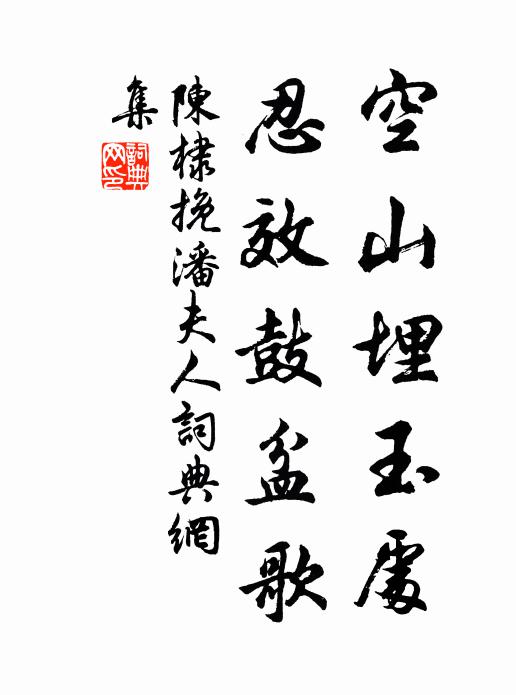 空山埋玉處
忍效鼓盆歌
陳棣挽潘夫人詞典網
集
詞典网印